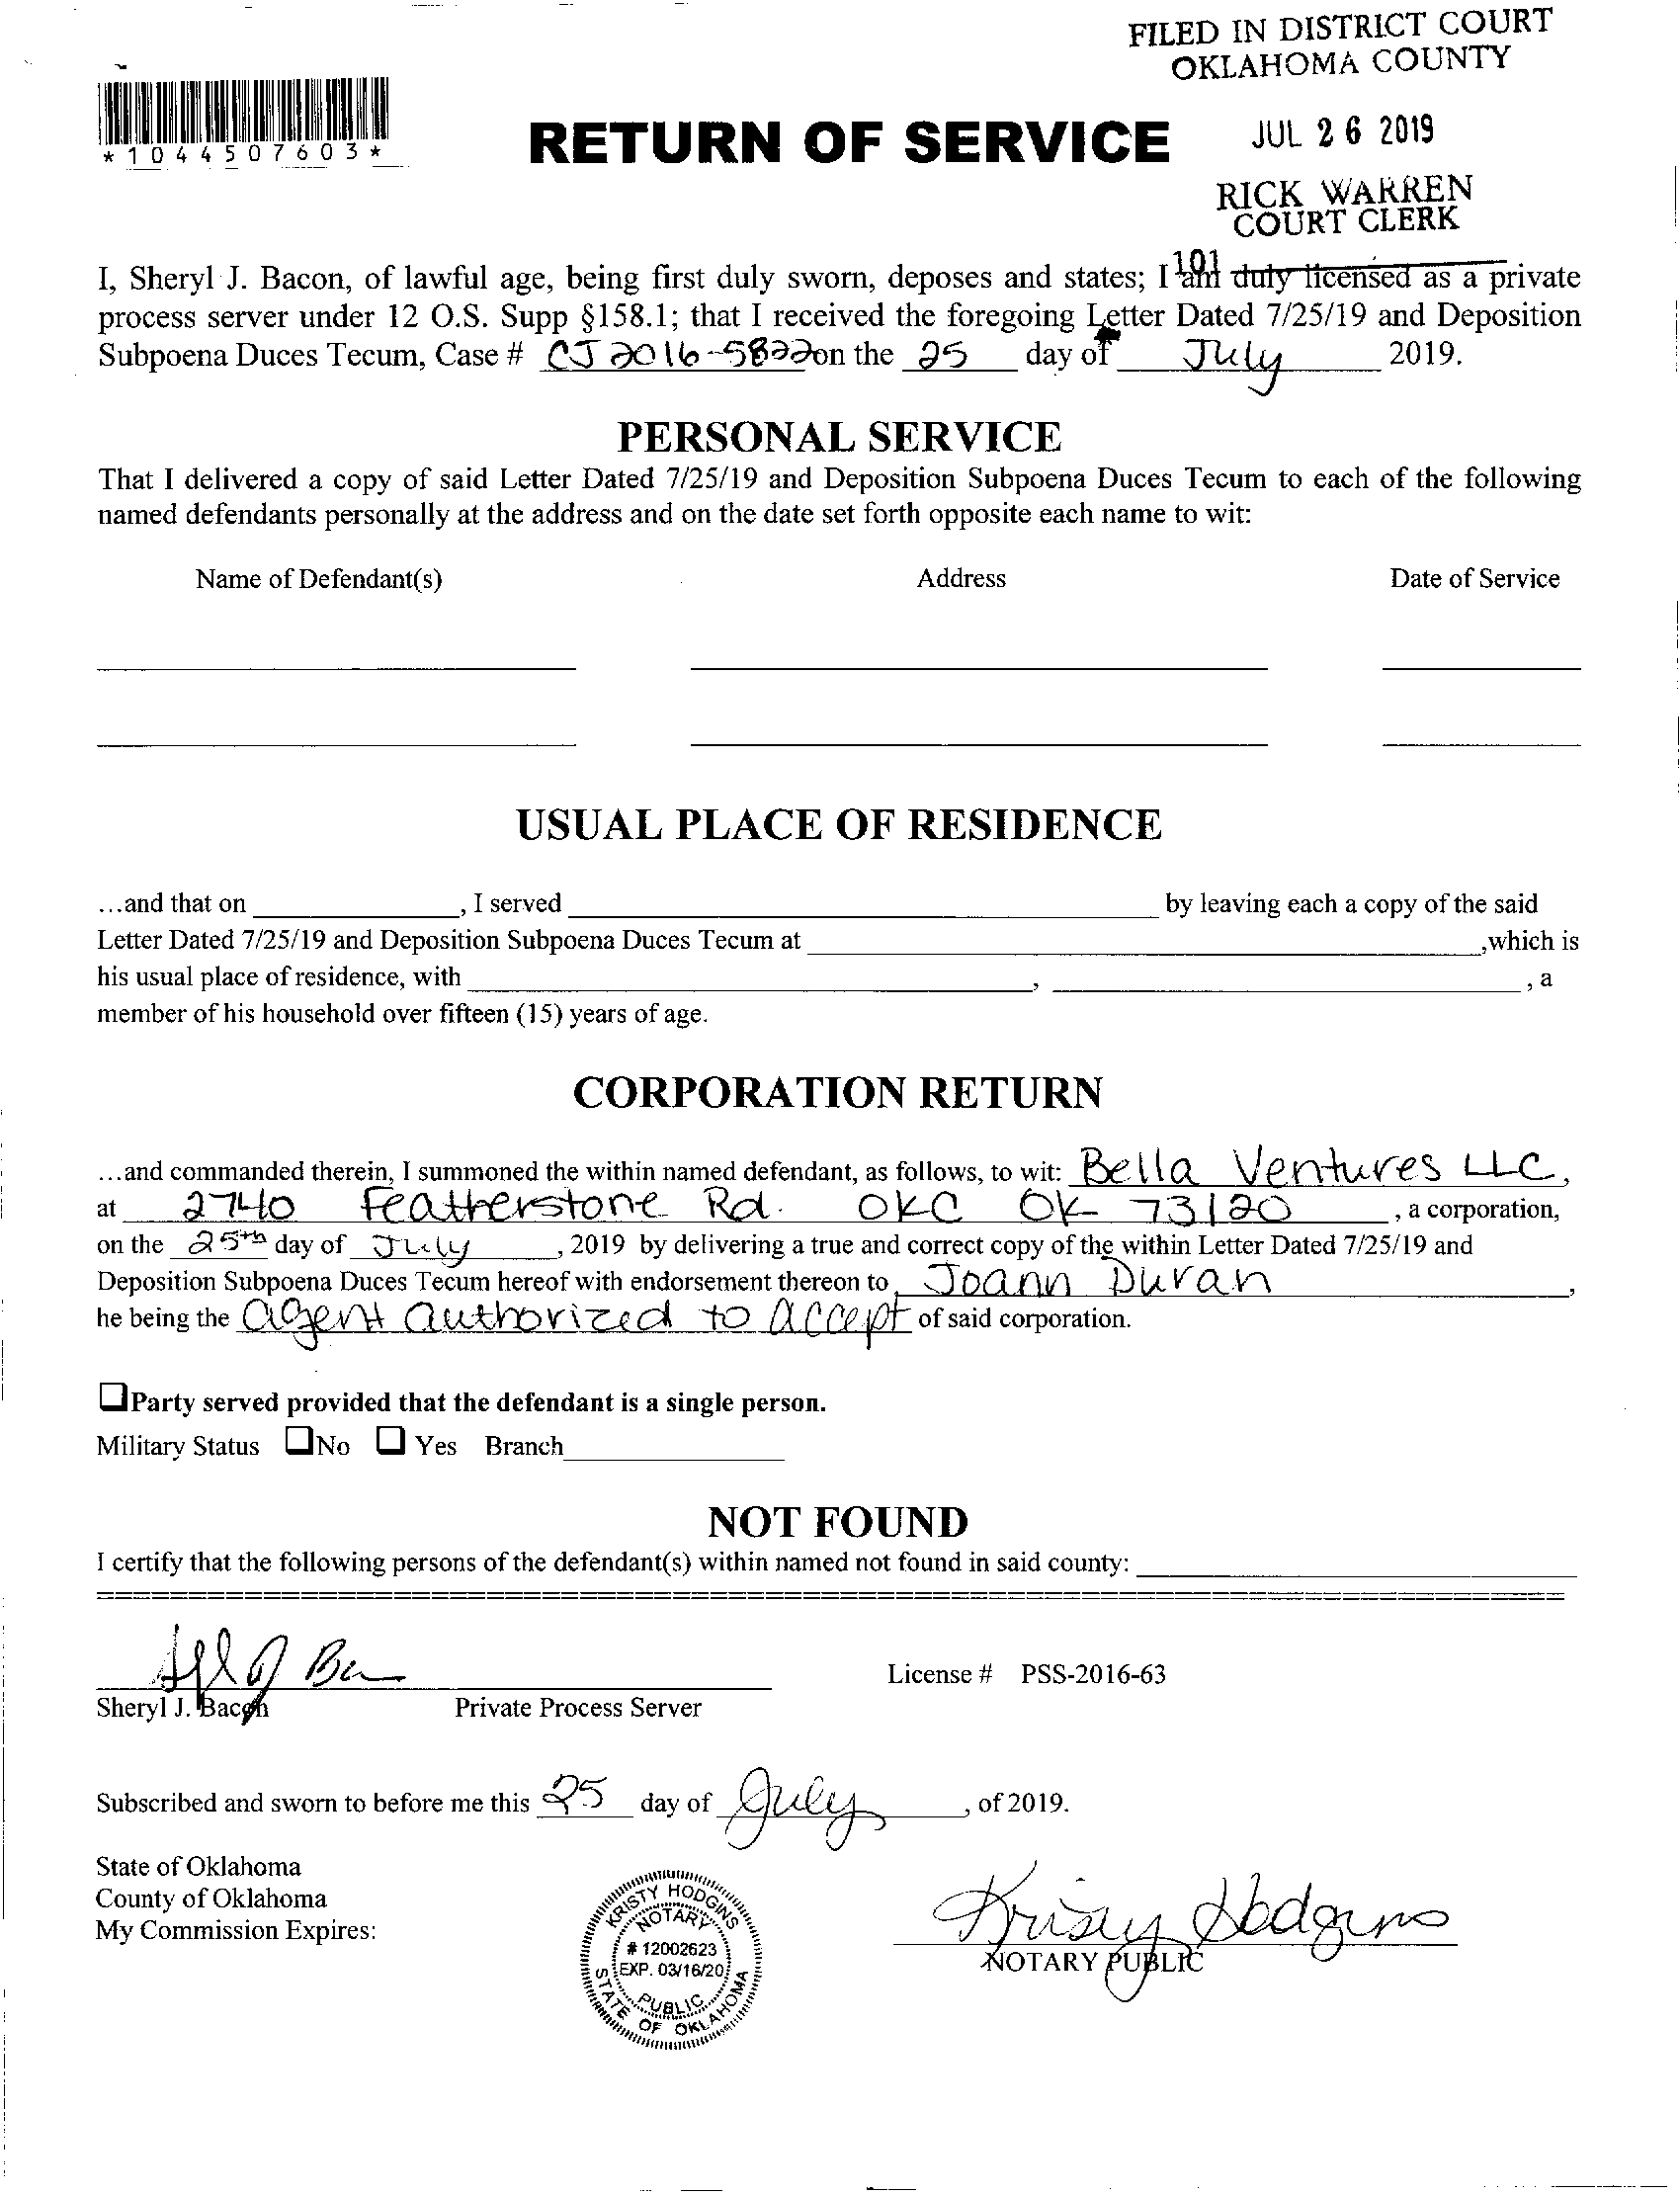 FILED IN DISTRICT COURT
OKLAHOMA COUNTY
JUL 26 2019
RICK WARREN
COURT CLERK
101
*1044507603*
RETURN OF SERVICE
I, Sheryl J. Bacon, of lawful age, being first duly sworn, deposes and states; I am duly licensed as a private
process server under 12 O.S. Supp §158.1; that I received the foregoing Letter Dated 7/25/19 and Deposition
Subpoena Duces Tecum, Case # CJ 2016-5822 on the 25 day of July 2019.
PERSONAL SERVICE
That I delivered a copy of said Letter Dated 7/25/19 and Deposition Subpoena Duces Tecum to each of the following
named defendants personally at the address and on the date set forth opposite each name to wit:
Name of Defendant(s) Address Date of Service
USUAL PLACE OF RESIDENCE
...and that on ____, I served ____ by leaving each a copy of the said
Letter Dated 7/25/19 and Deposition Subpoena Duces Tecum at ____,which is
his usual place of residence, with ____, ____, a
member of his household over fifteen (15) years of age.
CORPORATION RETURN
...and commanded therein, I summoned the within named defendant, as follows, to wit: Bella Ventures LLC,
at 2740 Featherstone Rd. OKC OK 73120, a corporation,
on the 25th day of July, 2019 by delivering a true and correct copy of the within Letter Dated 7/25/19 and
Deposition Subpoena Duces Tecum hereof with endorsement thereon to Joann Duran,
he being the agent authorized to accept of said corporation.
☐Party served provided that the defendant is a single person.
Military Status ☐No ☐ Yes Branch____
NOT FOUND
I certify that the following persons of the defendant(s) within named not found in said county: ____
License # PSS-2016-63
Sheryl J. Bacon Private Process Server
Subscribed and sworn to before me this 25 day of July, of 2019.
State of Oklahoma
County of Oklahoma
My Commission Expires:
KRISTY HODGINS
NOTARY
# 12002623
EXP. 03/16/20
PUBLIC
STATE OF OKLAHOMA
Kristy Hodgins
NOTARY PUBLIC